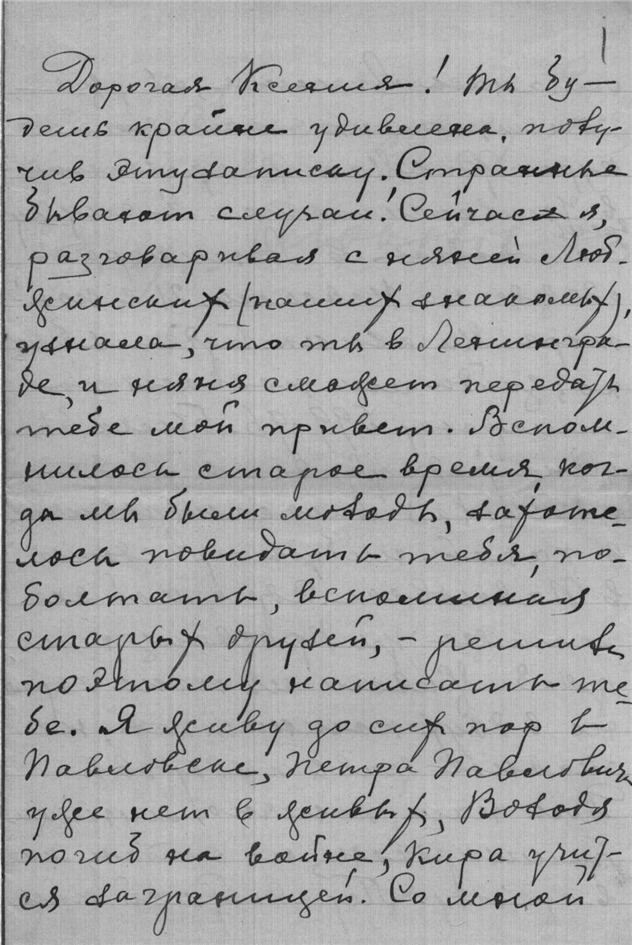 1
Дорогая Ксения! Ты бу-
дешь крайне удивлена, полу-
чив эту записку. Странные
бывают случаи! Сейчас я,
разговаривая с няней Люб-
жинских (наших знакомых),
узнала, что ты в Ленингра-
де, и няня сможет передать
тебе мой привет. Вспом-
нилось старое время, ког-
да мы были молоды, захоте-
лось повидать тебя, по-
болтать, вспоминая
старых друзей, – решила
поэтому написать те-
бе. Я живу до сих пор в
Павловске, Петра Павловича
уже нет в живых, Володя
погиб на войне, Кира учит-
ся заграницей. Со мной